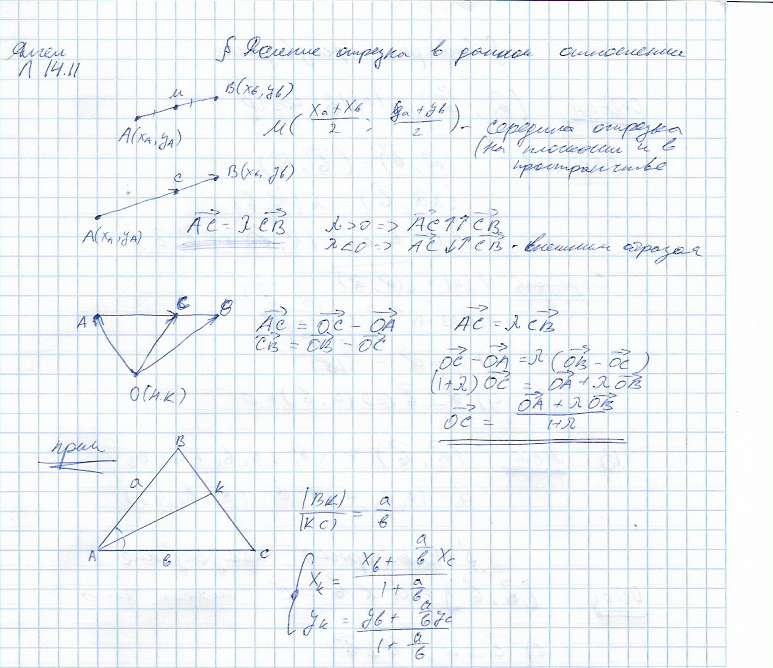 Л 14.11
§ Деление отрезка в данном отношении
M
B(xв, yв)
A(xA, yA)
M( (xа + xв)/2 ; (yа + yв)/2 ) - середина отрезка
(на плоскости и в
пространстве
C
B(xв, yв)
A(xA, yA)
AC→ = λ CB→
λ>0 => AC→ ↑↑ CB→
λ<0 => AC→ ↓↑ CB→ - внешним образом
A
C
B
O(н.к)
AC→ = OC→ − OA→
CB→ = OB→ − OC→
AC→ = λ CB→
OC→ − OA→ = λ (OB→ − OC→)
(1+λ) OC→ = OA→ + λ OB→
OC→ = (OA→ + λ OB→)/(1+λ)
прим
B
a
K
A
в
C
|BK|/|KC| = a/в
xк = (xв + a/в xс)/(1 + a/в)
yк = (yв + a/в yс)/(1 + a/в)